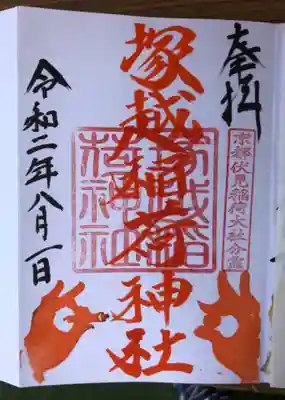 奉拝
京都伏見稲荷大社分霊
塚越稲荷神社
塚越稲荷神社
令和二年八月一日